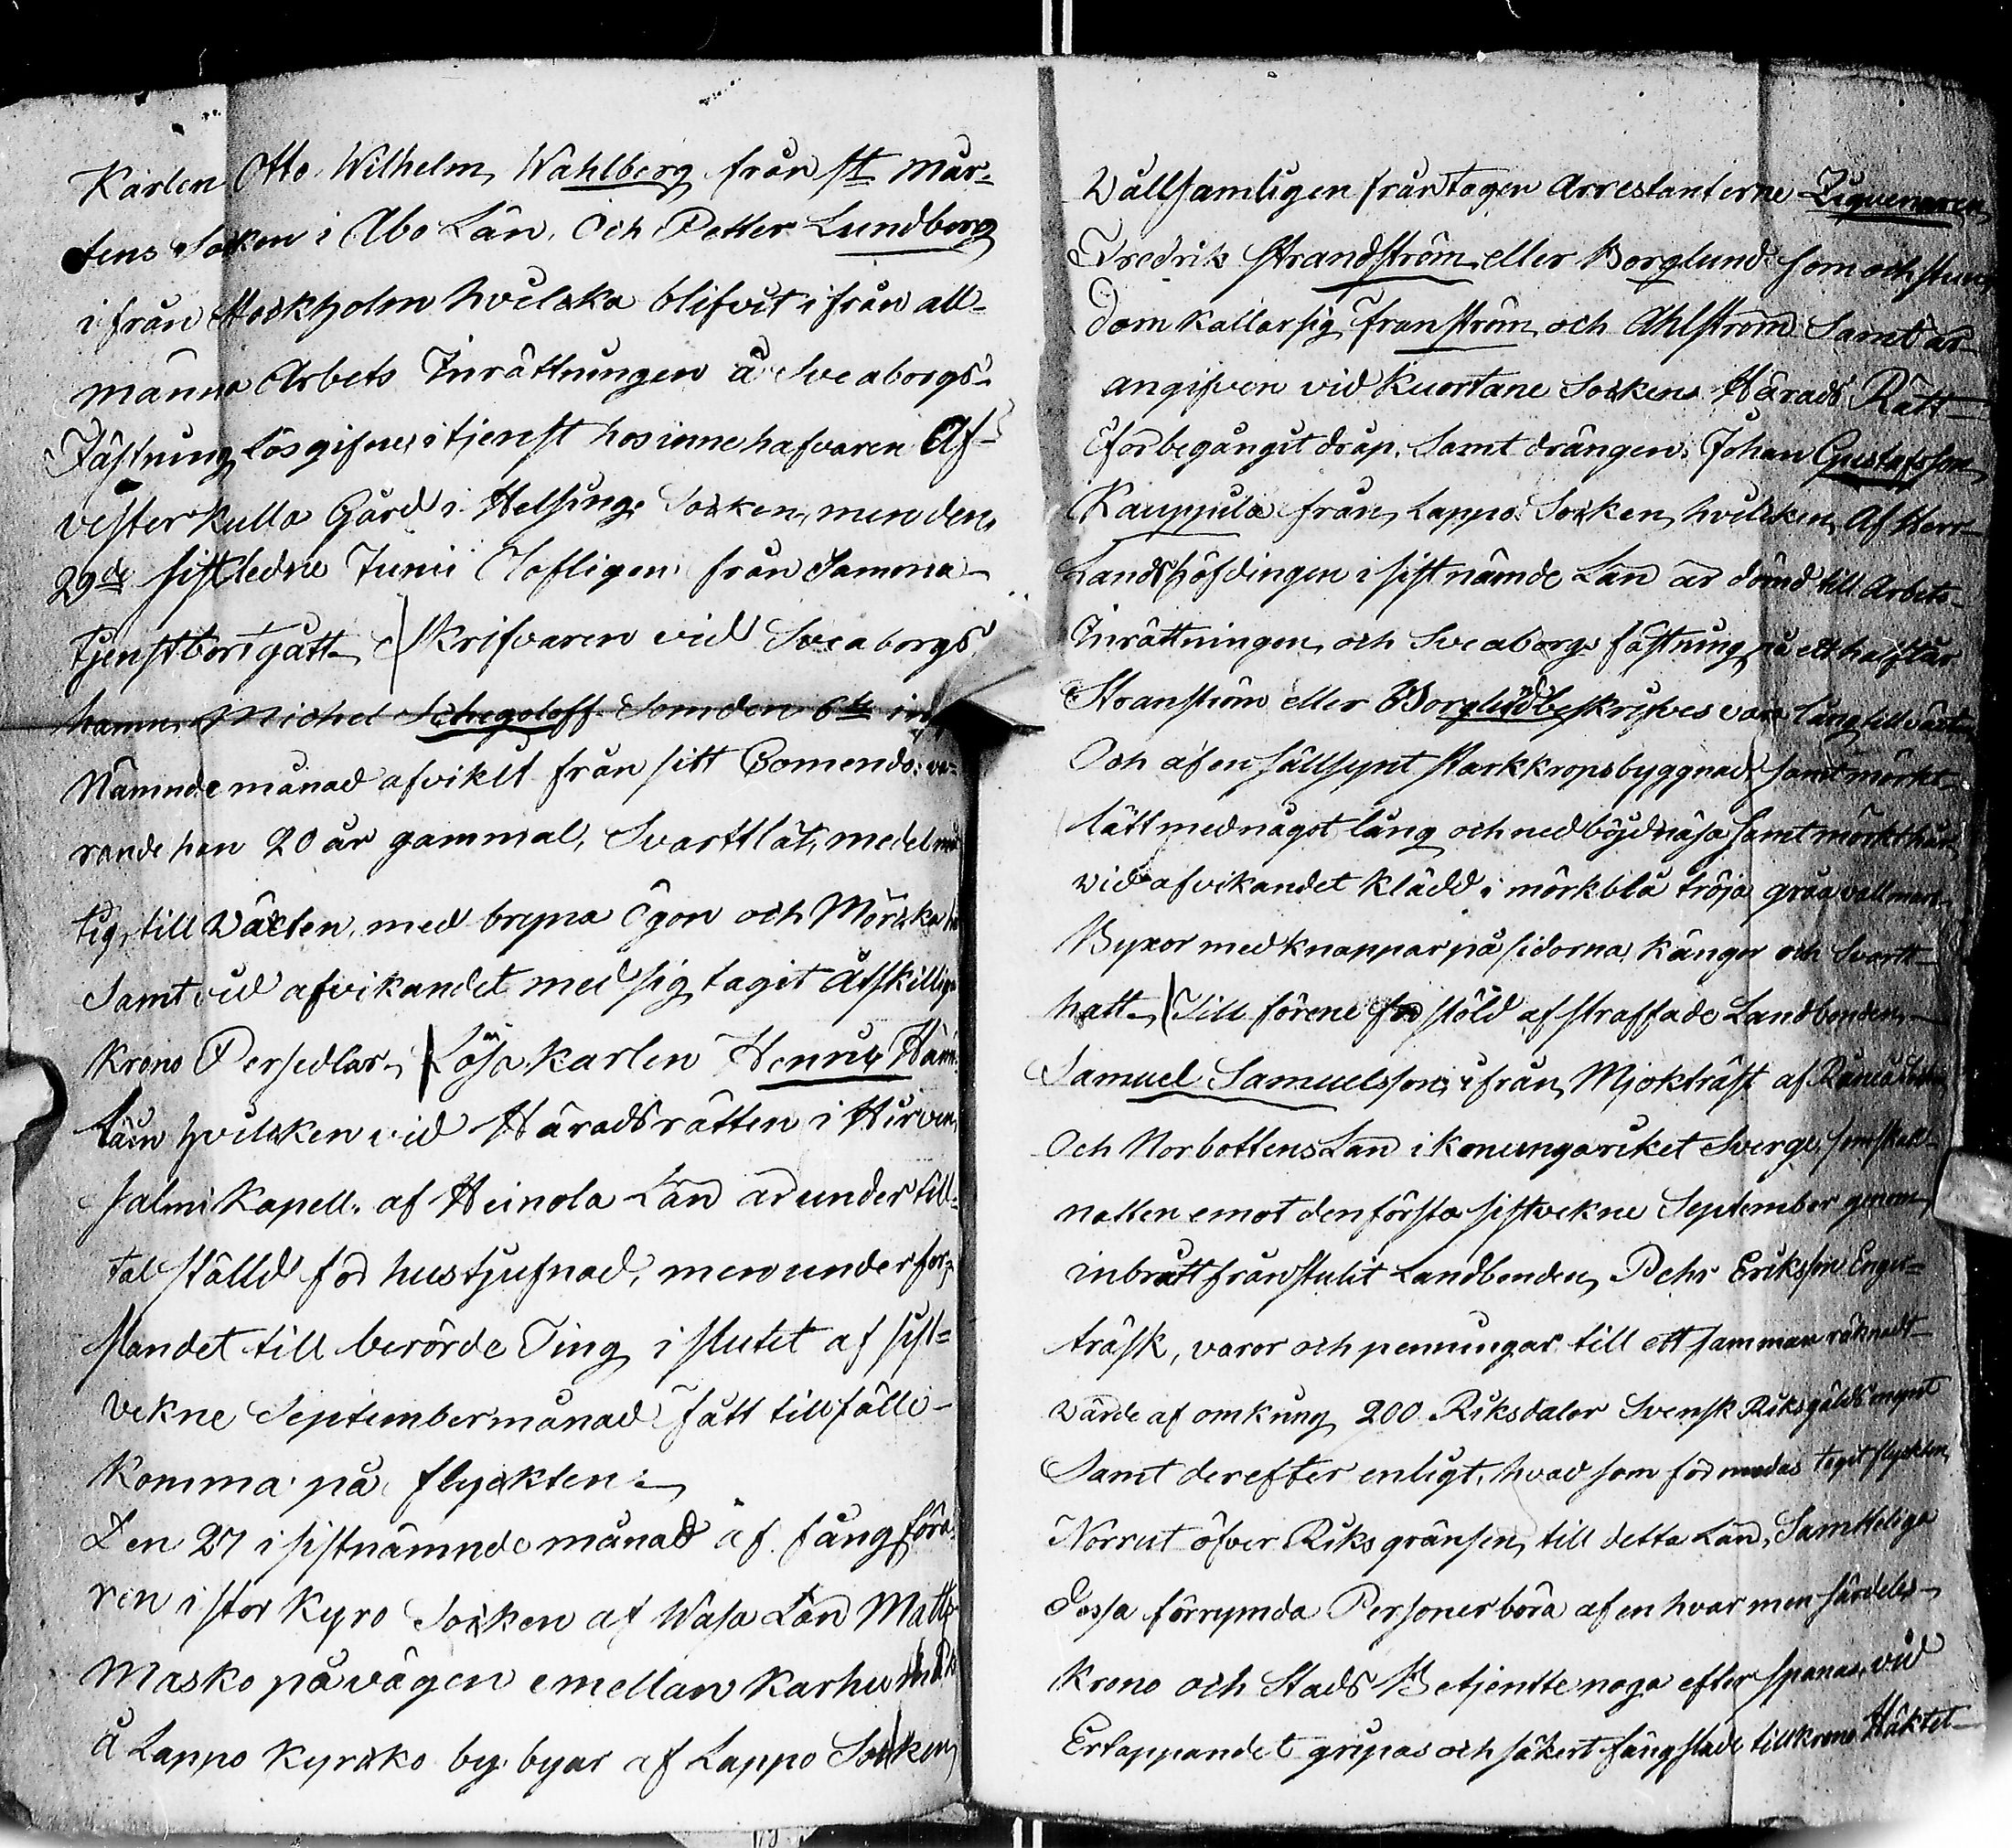 Karlen Otto Wilhelm Wahlberg från St Mår-
tens Socken i Åbo Län, Och Petter Lundberg
ifrån Stockholm hvilcka blifvit ifrån all-
männa Arbets Inrättningen å Sveaborgs
Fästning Lösgifne i tjenst hos innehafvaren Af
vester Kulla Gård i Helsinge Socken, men den
29de sistledne Junii Olofligen från Samma
tjenst bort gått / Skrifvaren vid Sveaborgs
hamn Michel Schegoloff Som den 6te in
Nämnde månad afvikit från sitt Comendo, va-
rande han 20 år gammal, Svartlät, medelmå
tig till Wäxten, med bryna Ögon och Mörcka hår
Samt vid afvikandet med sig tagit åtskillige
Krono Persedlar / Lösa Karlen Henrik Häm
läin hvilcken vid Häradsrätten i Hirven
salmi Kapell af Heinola Län är under till-
tal ställd för hustjufnad, men under for-
slandet till berörde Ting i slutet af sist-
vekne September månad fått tillfälle
Komma på flyckten
Den 27 i sistnämnde månad af fångföra
ren i stor Kyro Socken af Wasa Län Matts
Masko på vägen emellan Karhu
å Lappo Kyrcko by byar af Lappo Socken
Wåldsamligen från tagen Arrestanterne Ziguenaren
Fredrik Strandström eller Borglund som och
dom Kallar sig Franström och Ahlström Samt är
angifven vid Kuortane Socken Härads Rätt
för begångit dråp, Samt drängen Johan Gustafsson
Kauppila från Lappo Socken hvilcken Af Herr
Landshöfdingen i sistnämde Län är dömd till Arbets
Inrättningen och Sveaborgs fästning på ett halft år
Stranström eller Borglund beskrifves vara lång till växten
Och af en sällsynt stark kropsbyggnad samt mörkt-
lätt med något lång och nedböjd näsa samt mörkt hår
vid afvikandet klädd i mörkblå tröja gråa vallmars
Byxor med knappar på sidorna Kängor och Svart
hatt / Till förene för stöld afstraffade Landbonden
Samuel Samuelsson ifrån Mjoktråsk af Råneå
Och Norbottens Län i Konungariket Sverge som skall
natten emot den första sistvekne September genom
inbrått frånstulit Landbonden Pehr Eriksson Enger-
träsk, varor och penningar till ett samman räknadt
värde af omkring 200 Riksdaler Svensk Riksgälds mynt
Samt derefter enligt hvad som förmodas tagit flyckten
Norrut öfver Riks gränsen till detta Län, Samtteliga
Dessa förrymda Personer böra af en hvar men särdeles
Krono och Stads Betjente noga efter spanas, vid
Ertappandet gripas och säkert fängslade till krono Häktet